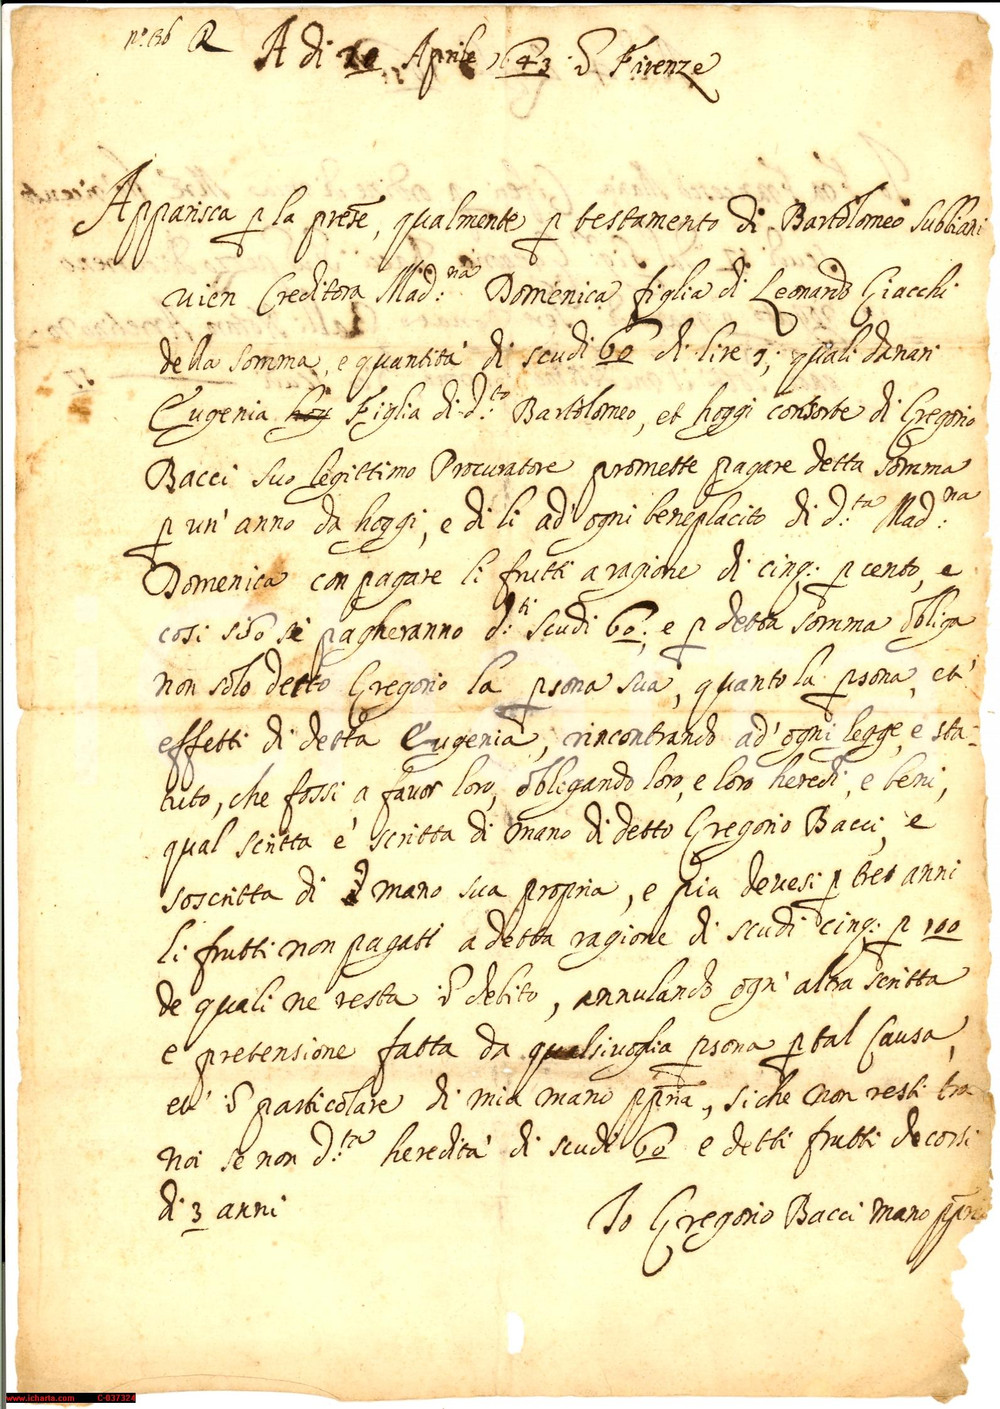 n.º 136 R
A di 10 Aprile 1643 : Firenze
Apparisca p la prese͂te, qualmente p testamento di Bartolomeo Subbiani
vien Creditora Mad:ⁿᵃ Domenica figlia di Leonardo Giacchi
della somma, e quantita' di scudi 60 di lire 7; quali danari
Eugenia hog Figlia di d:ᵗᵒ Bartolomeo, et hoggi consorte di Gregorio
Bacci suo legittimo Procuratore promette pagare detta somma
p un' anno da hoggi, e di li ad' ogni beneplacito di d:ᵗᵃ Mad:ⁿᵃ
Domenica con pagare li frutti a ragione di cinq: p cento, e
cosi si pagheranno d:ᵗⁱ scudi 60; e p detta somma obliga
non solo detto Gregorio la psona sua, quanto la psona, et'
effetti di detta Eugenia, rincontrando ad' ogni legge, e sta-
tuto, che fossi a favor loro, obligando loro, e loro heredi, e beni,
qual scritta e' scritta di mano di detto Gregorio Bacci, e
soscritta di mano sua propria, e piu devesi p tre anni
li frutti non pagati a detta ragione di scudi cinq: p 100
de quali ne resta debito, annulando ogn' altra scritta
e pretensione fatta da qualsivoglia psona p tal Causa,
et' particolare di mia mano ppria, si che non resti tra
noi se non d:ᵗᵃ heredita' di scudi 60 e detti frutti decorsi
di 3 anni
Io Gregorio Bacci mano ppria
www.icharta.com C-037324